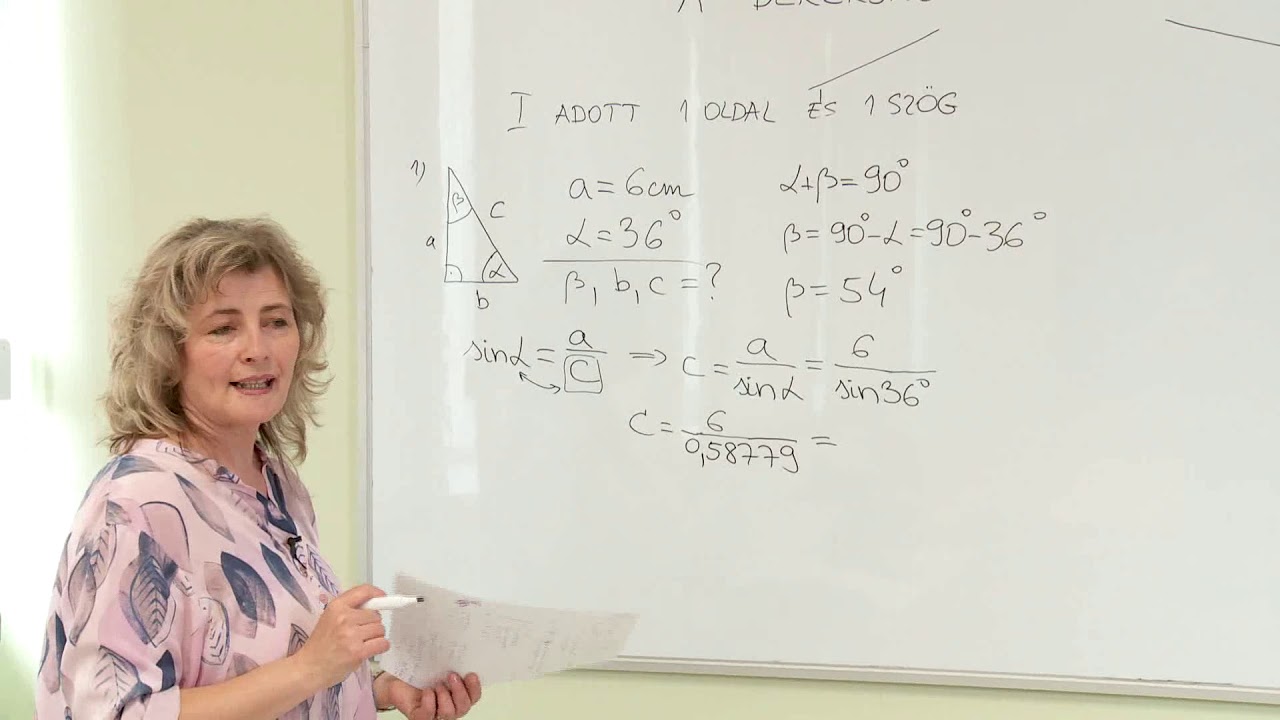 I ADOTT 1 OLDAL ÉS 1 SZÖG
1)
β
a
c
α
b
a = 6cm
α = 36°
β, b, c = ?
α+β = 90°
β = 90° - α = 90° - 36°
β = 54°
sinα = a/c ⇒ c = a/sinα = 6/sin36°
c = 6/0,58779 =